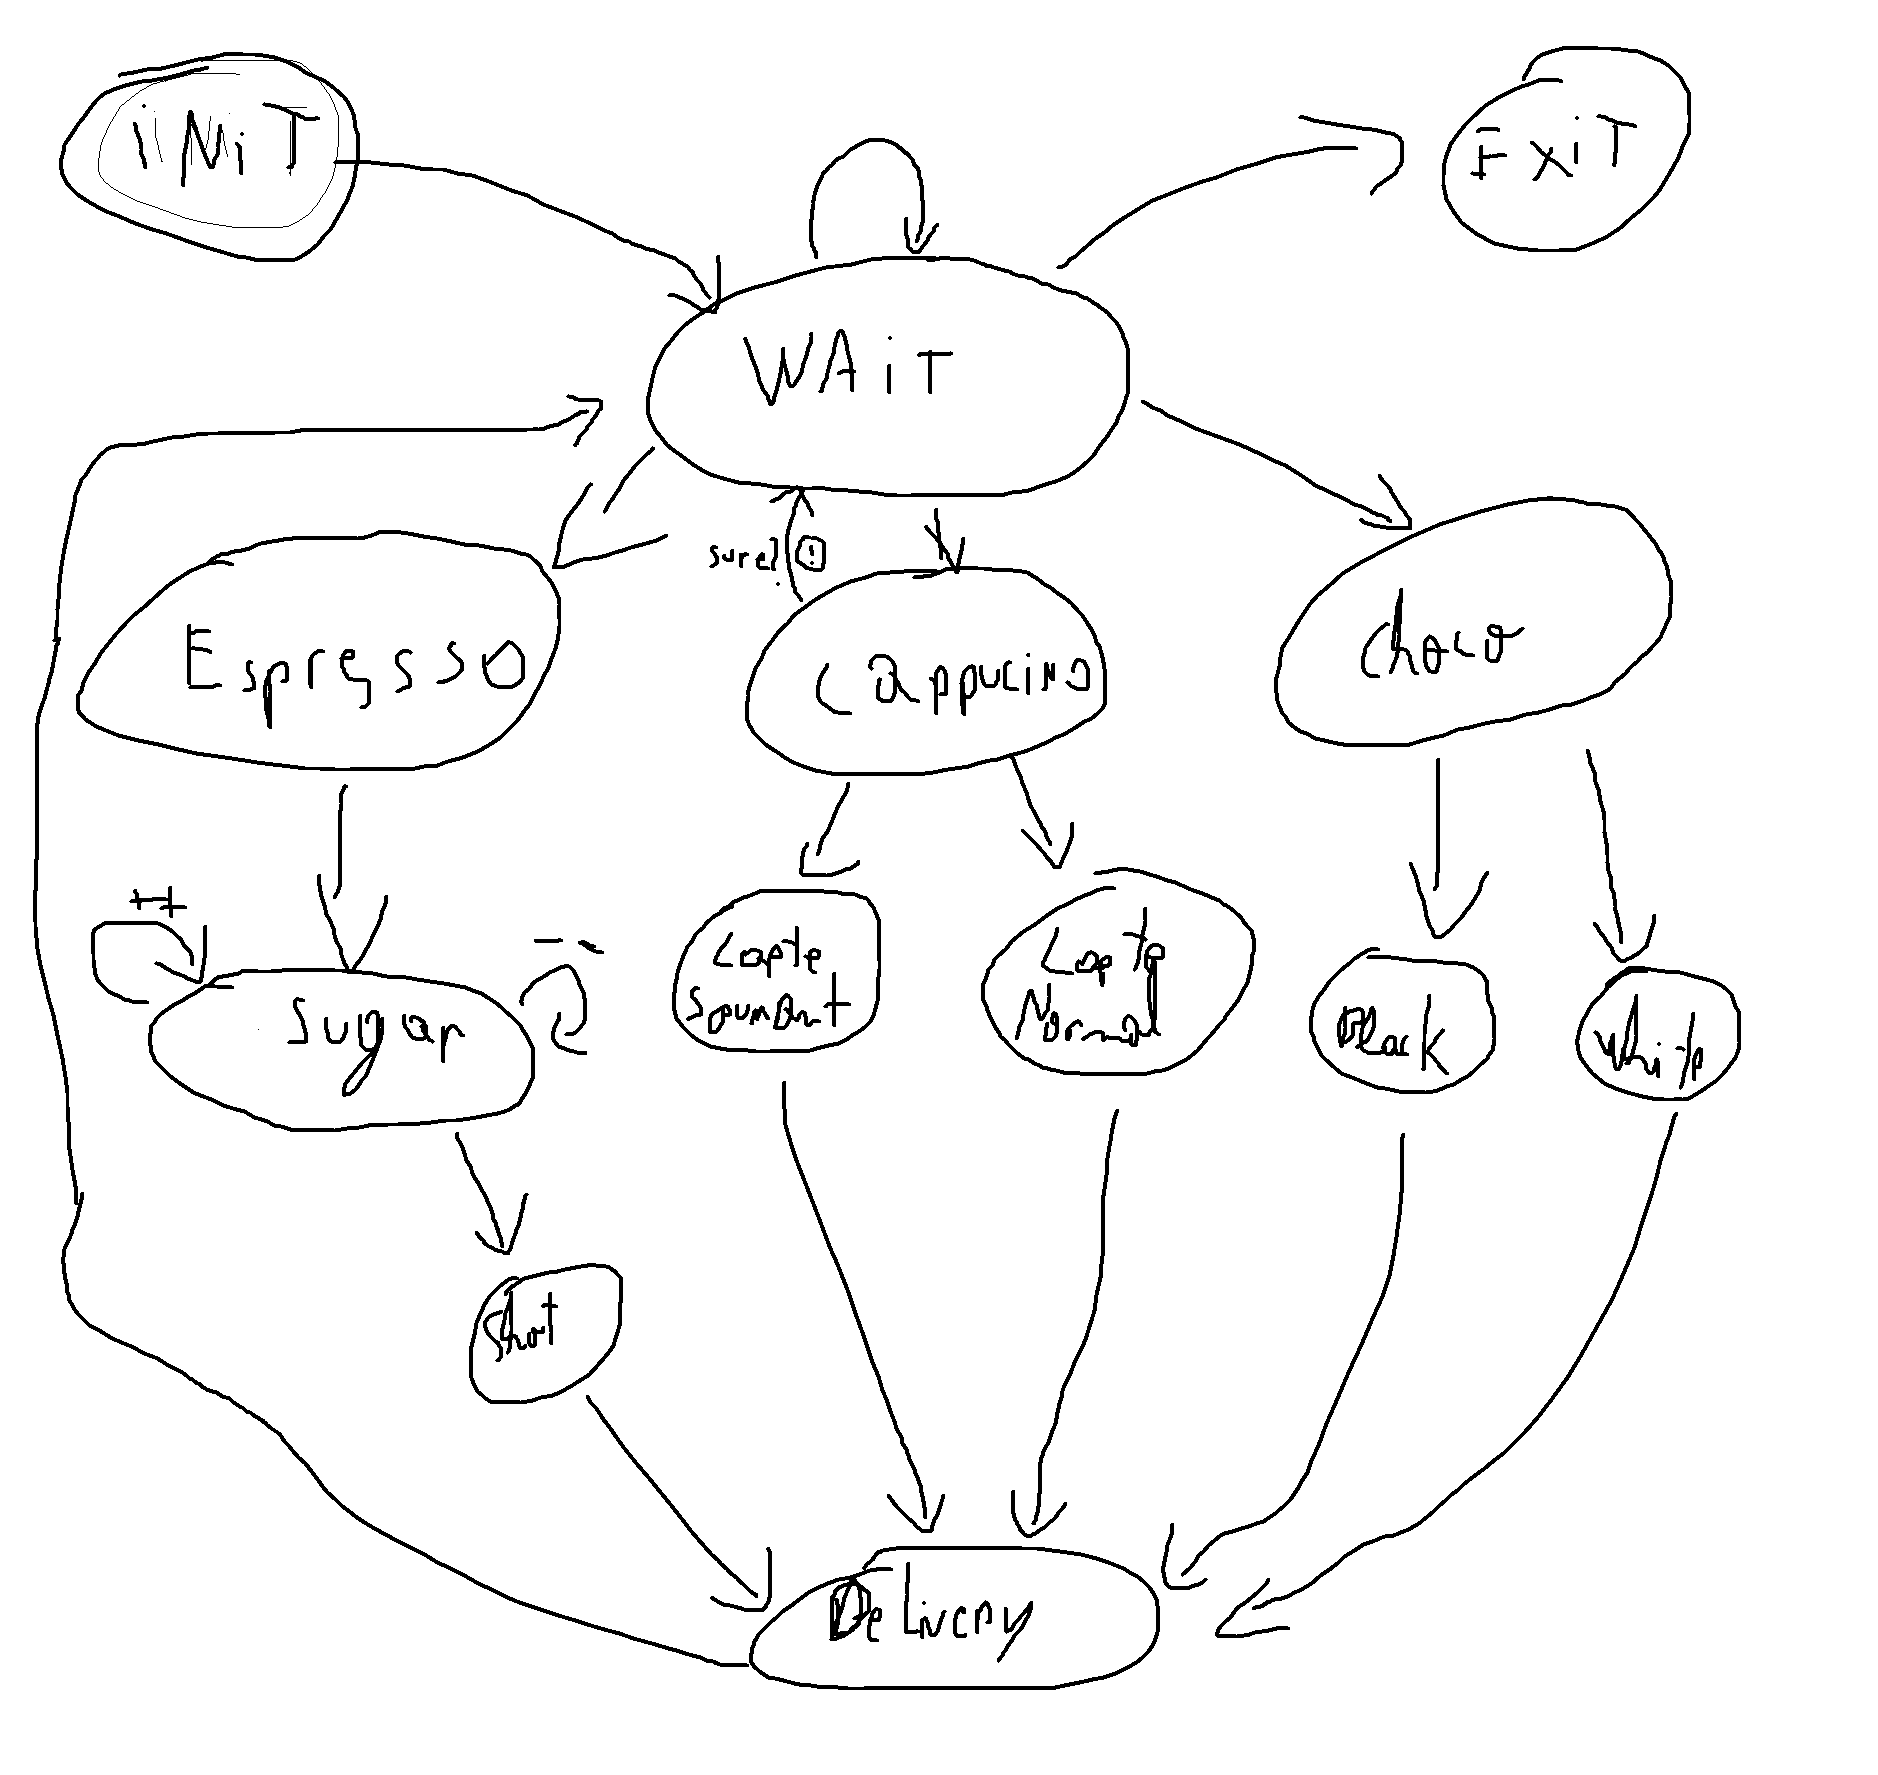 iNiT
EXiT
WAiT
sure?
!
Espresso
Cappucino
choco
++
--
Sugar
Lapte
Spumant
Lapte
Normal
Black
White
Shot
Delivery